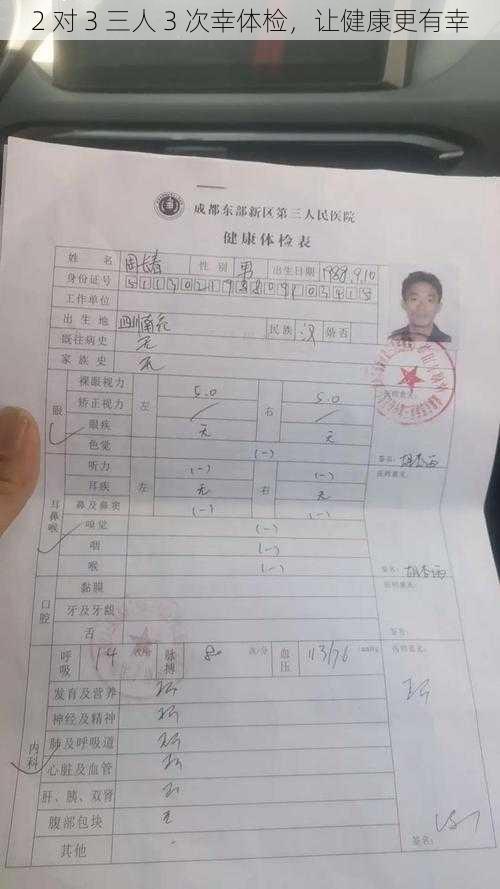 2 对 3 三人 3 次幸体检，让健康更有幸
成都东部新区第三人民医院
健康体检表
姓 名 性 别 男 出生日期 1988.9.10
身份证号
工作单位
出 生 地 四川南充 民族 汉 婚否
既往病史 无
家 族 史 无
医师意见:
眼 裸眼视力 左 5.0 右 5.0
矫正视力 / /
眼疾 无 无
色觉 (-) 签名:
耳鼻喉 听力 左 (-) 右 (-) 医师意见:
耳疾 无 无
鼻及鼻窦 (-) (-)
嗅觉 (-)
咽 (-)
喉 (-) 签名:
口腔 黏膜 医师意见:
牙及牙龈
舌 签名:
内科 呼吸 14 次/分 脉搏 80 次/分 血压 113/76 mmHg 医师意见:
发育及营养
神经及精神
肺及呼吸道
心脏及血管
肝、胰、双肾
腹部包块 无
其他 签名: